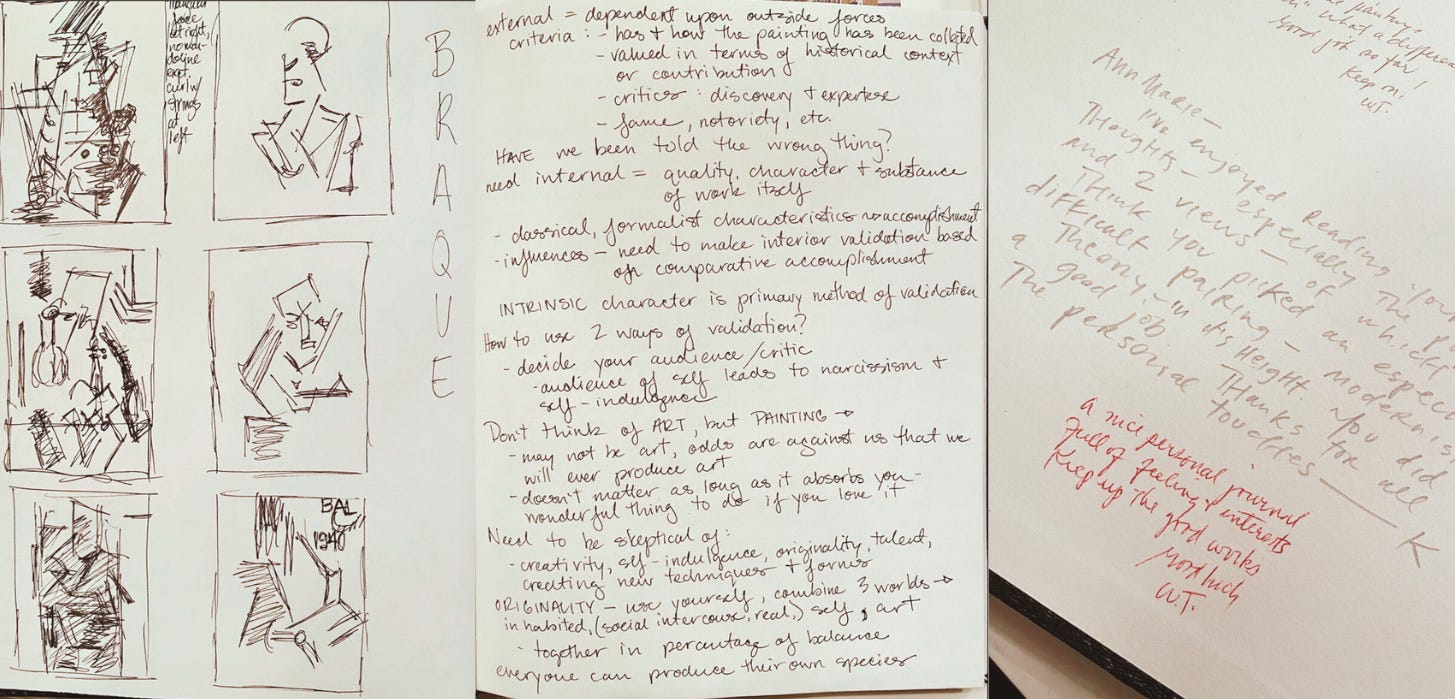 left right,
define
curl w/
strings
at
left
B
R
A
Q
U
E
BAL
1940
external = dependent upon outside forces
criteria : - has + how the painting has been collected
- valued in terms of historical context
or contribution
- critics : discovery + expertese
- fame, notoriety, etc.
HAVE we been told the wrong thing?
need internal = quality, character + substance
of work itself
- classical, formalist characteristics → accomplishment
- influences - need to make interior validation based
on comparative accomplishment
INTRINSIC character is primary method of validation
How to use 2 ways of validation?
- decide your audience/critic
- audience of self leads to narcissism +
self-indulgence
Don't think of ART, but PAINTING →
- may not be art, odds are against us that we
will ever produce art
- doesn't matter as long as it absorbs you -
wonderful thing to do if you love it
Need to be skeptical of:
- creativity, self-indulgence, originality, talent,
creating new techniques + forms
ORIGINALITY - use yourself, combine 3 worlds →
inhabited, (social intercourse, real,) self, art
- together in percentage of balance
everyone can produce their own species
painting
What a differen
Good job so far!
Keep on!
W.T.
Ann Marie -
I've enjoyed reading you
Thoughts - especially the p
and 2 views - of which
Think you picked an espec
difficult pairing - modernis
a Theory - in its height. You did
good job Thanks for all
The personal touches —
K
a nice personal journal
full of feeling + interests
Keep up the good works
Most luck
W.T.